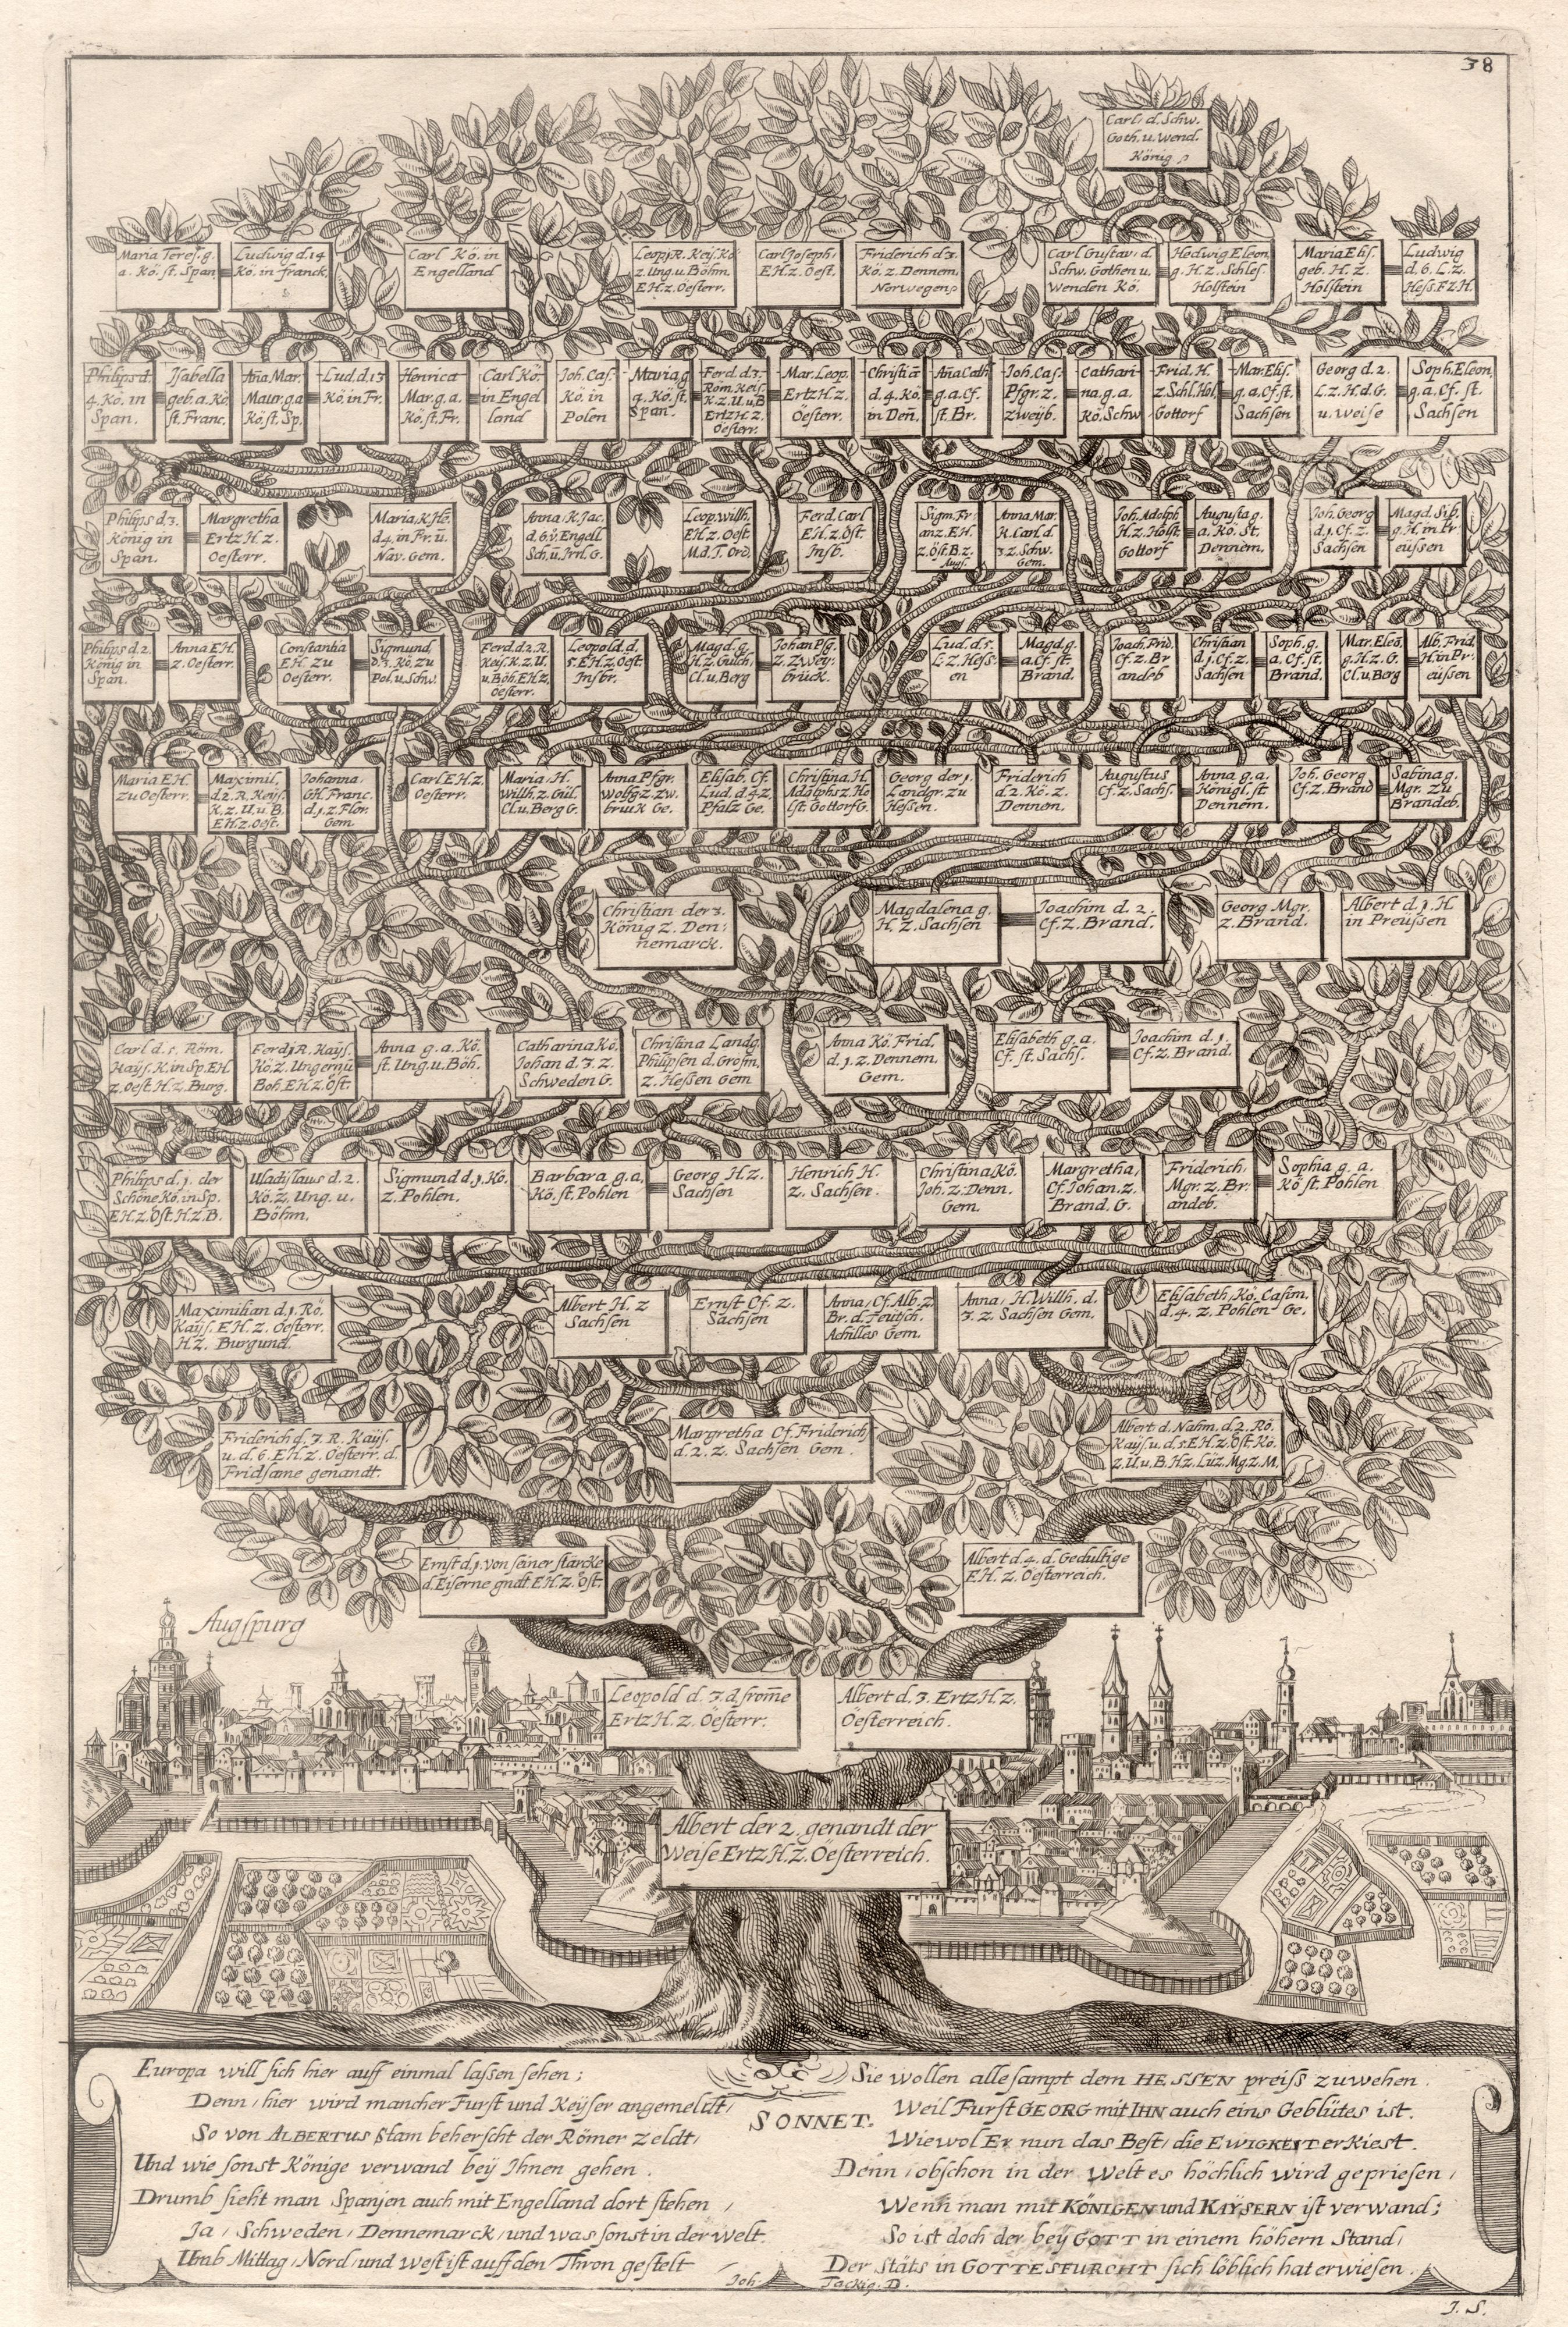 38
Carl d. Schw.
Goth. u. Wend.
König
Maria Teres. g.
a. Kö. st. Span
Ludwig d. 14
Kö. in franck.
Carl Kö. in
Engelland
Leop. j R. Keÿ. Kö
z. Ung. u. Böhm
E H. z. Oesterr.
Carl Joseph,
E H. z. Oest.
Friderich d. 3.
Kö. z. Dennem,
Norwegen
Carl Gustav, d.
Schw. Gothen u.
Wenden Kö.
Hedwig Eleon.
g. H. z. Schles.
Holstein
Maria Elis.
geb. H. z.
Holstein
Ludwig
d. 6. L. z.
Hess. F z H.
Philips d.
4. Kö. in
Span.
Isabella
geb. a. Kö.
st. Franc.
Aña Mar.
Maur. g a
Kö. st. Sp.
Lud. d. 13
Kö. in Fr.
Henrica
Mar. g. a.
Kö. st. Fr.
Carl Kö.
in Engel
land
Joh. Cas.
Kö. in
Polen
Maria g
a. Kö. st.
Span.
Ferd. d. 3.
Röm. Keis.
K. z. U. u. B
Ertz H. z.
Oesterr.
Mar. Leop.
Ertz H. z.
Oesterr.
Christiã
d. 4. Kö.
in Deñ.
Aña Cath
g. a. Cf.
st. Br.
Joh. Cas.
Pfgr. z.
Zweÿb.
Cathari-
na g. a.
Kö. Schw
Frid. H.
z. Schl. Hol.
Gottorf
Mar. Elis.
g. a. Cf. st.
Sachsen
Georg d. 2.
L. z. H. d. G.
u. Weise
Soph. Eleon.
g. a. Cf. st.
Sachsen
Philips d. 3.
König in
Span.
Margretha
Ertz H. z.
Oesterr.
Maria, K. He.
d. 4. in Fr. u.
Nav. Gem.
Anna, K. Jac.
d. 6. v. Engell
Sch. u. Irrl. G.
Leop. Willh.
E H. z. Oest.
M. d. T. Ord.
Ferd. Carl
E H. z. Öst.
Insb.
Sigm. Fr
anz. E H.
z. Öst. B z.
Augs.
Anna Mar.
K. Carl d.
3. z. Schw.
Gem.
Joh. Adolph
H. z. Holst
Gottorf
Augusta g.
a. Kö. St.
Dennem.
Joh. Georg
d. j. Cf. z.
Sachsen
Magd. Sib.
g. H. in Pr
eüssen
Philips d. 2
König in
Span.
Anna E H.
z. Oesterr.
Constantia
E H. zu
Oesterr.
Sigmund
d. 3. Kö. zu
Pol. u. Schw.
Ferd. d. 2. R.
Keÿ. K. z. U.
u. Böh. E H. z.
Oesterr.
Leopold d.
5. E H. z. Oest.
Insbr.
Magd. g.
H. z. Gülch,
Cl. u. Berg
Johan Pfg.
z. Zweÿ-
brück.
Lud. d. 5.
L. z. Hess-
en
Magd. g.
a. Cf. st.
Brand.
Joach. Frid.
Cf. z. Br
andeb
Christian
d. j. Cf. z.
Sachsen
Soph. g.
a. Cf. st.
Brand.
Mar. Eleõ.
g. H. z. G.
Cl. u. Berg
Alb. Frid.
H. in Pr-
eüssen
Maria E H.
zu Oesterr.
Maximil,
d. 2. R. Keÿs.
K. z. U. u. B.
E H. z. Oest.
Johanna,
G H. Franc.
d. j. z. Flor.
Gem
Carl. E H. z.
Oesterr.
Maria, H.
Willh. z. Gül.
Cl. u. Berg G.
Anna Pfgr.
Wolfg. z. Zw.
brück Ge.
Elisab. Cf.
Lud. d. 4. z.
Pfalz Ge.
Christina H.
Adolphs z. Ho
lst. Gottorf G.
Georg der j.
Landgr. zu
Hessen.
Friderich
d. 2. Kö. z.
Dennem.
Augustus
Cf. z. Sachs.
Anna g. a.
Königl. st
Dennem.
Joh. Georg
Cf. z. Brand
Sabina g.
Mgr. zu
Brandeb.
Christian der 3.
König z. Den-
nemarck.
Magdalena g.
H. z. Sachsen
Joachim d. 2.
Cf. z. Brand.
Georg Mgr.
z. Brand.
Albert d. j. H.
in Preüssen
Carl d. 5. Röm.
Kaÿs. K. in Sp. E H
z. Oest. H. z. Burg.
Ferd. j R. Kaÿs.
Kö. z. Ungern u
Boh. E H. z. Öst.
Anna g. a. Kö.
st. Ung. u. Böh.
Catharina Kö.
Johan d. 3. z.
Schweden G.
Christina Landg.
Philipsen d. Grosm.
z. Hessen Gem
Anna Kö. Frid.
d. j. z. Dennem.
Gem.
Elisabeth g. a.
Cf. st. Sachs.
Joachim d. j.
Cf. z. Brand.
Philips d. j. der
Schöne Kö. in Sp.
E H. z. Öst. H. z. B.
Uladislaus d. 2.
Kö. z. Ung. u.
Böhm.
Sigmund d. j. Kö.
z. Pohlen.
Barbara g. a.
Kö. st. Pohlen
Georg H. z.
Sachsen
Henrich H.
z. Sachsen.
Christina Kö.
Joh. z. Denn.
Gem.
Margretha,
Cf. Johan. z.
Brand. G.
Friderich,
Mgr. z. Br
andeb.
Sophia g. a.
Kö st. Pohlen
Maximilian d. j. Rö.
Kaÿs. E H. z. Oesterr.
H z. Burgund.
Albert H. z
Sachsen
Ernst Cf. z.
Sachsen
Anna, Cf. Alb. z
Br. d. Teutsch.
Achilles Gem.
Anna, H. Willh. d.
3. z. Sachsen Gem.
Elisabeth, Kö. Casim.
d. 4. z. Pohlen Ge.
Friderich d. 3. R. Kaÿs.
u. d. 6. E H. z. Oesterr. d.
Fridsame genandt.
Margretha Cf. Friderich
d. 2. z. Sachsen Gem.
Albert d. Nahm. d. 2. Rö.
Kaÿs. u. d. 5. E H. z. Öst. Kö.
z. U. u. B. H z. Lüz. Mg. z. M.
Ernst d. j. von seiner stärcke
d. Eiserne gndt. E H. z. Öst.
Albert d. 4. d. Gedultige
E H. z. Oesterreich.
Augspurg
Leopold d. 3. d. from̄e
Ertz H. z. Öesterr.
Albert d. 3. Ertz H. z.
Öesterreich.
Albert der 2. genandt der
Weise Ertz H. z. Öesterreich.
SONNET.
Europa will sich hier auff einmal lassen sehen;
Denn, hier wird mancher Furst und Keÿser angemeldt,
So von ALBERTUS Stam beherscht der Römer Zeldt,
Und wie sonst Könige verwand beÿ Ihnen gehen.
Drumb sieht man Spanjen auch mit Engelland dort stehen,
Ja, Schweden, Dennemarck, und was sonst in der Welt.
Umb Mittag, Nord, und West ist auff den Thron gestelt
Sie wollen allesampt dem HESSEN preiss zuwehen.
Weil Furst GEORG mit IHN auch eins Geblütes ist.
Wiewol Er nun das Best, die EWIGKEIT erkiest.
Denn, obschon in der Welt es höchlich wird gepriesen,
Wenn man mit KÖNIGEN und KAŸSERN ist verwand;
So ist doch der beÿ GOTT in einem höhern Stand,
Der Stäts in GOTTESFURCHT sich löblich hat erwiesen.
Joh. Tackig. D.
J. S.